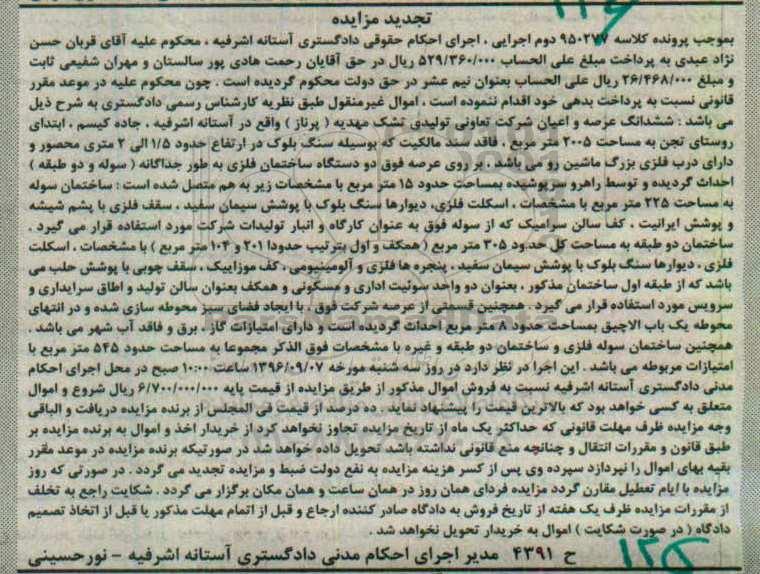 ۱۲۶
تجدید مزایده
بموجب پرونده کلاسه ۹۵۰۲۷۷ دوم اجرایی ، اجرای احکام حقوقی دادگستری آستانه اشرفیه ، محکوم علیه آقای قربان حسن
نژاد عبدی به پرداخت مبلغ علی الحساب ۵۲۹/۳۶۰/۰۰۰ ریال در حق آقایان رحمت هادی پور سالستان و مهران شفیعی ثابت
و مبلغ ۲۶/۴۶۸/۰۰۰ ریال علی الحساب بعنوان نیم عشر در حق دولت محکوم گردیده است . چون محکوم علیه در موعد مقرر
قانونی نسبت به پرداخت بدهی خود اقدام ننموده است ، اموال غیرمنقول طبق نظریه کارشناس رسمی دادگستری به شرح ذیل
می باشد : ششدانگ عرصه و اعیان شرکت تعاونی تولیدی تشک مهدیه ( پرناز ) واقع در آستانه اشرفیه ، جاده کیسم ، ابتدای
روستای تجن به مساحت ۲۰۰۵ متر مربع ، فاقد سند مالکیت که بوسیله سنگ بلوک در ارتفاع حدود ۱/۵ الی ۲ متری محصور و
دارای درب فلزی بزرگ ماشین رو می باشد . بر روی عرصه فوق دو دستگاه ساختمان فلزی به طور جداگانه ( سوله و دو طبقه )
احداث گردیده و توسط راهرو سرپوشیده بمساحت حدود ۱۵ متر مربع با مشخصات زیر به هم متصل شده است : ساختمان سوله
به مساحت ۲۲۵ متر مربع با مشخصات ، اسکلت فلزی، دیوارها سنگ بلوک با پوشش سیمان سفید ، سقف فلزی با پشم شیشه
و پوشش ایرانیت ، کف سالن سرامیک که از سوله فوق به عنوان کارگاه و انبار تولیدات شرکت مورد استفاده قرار می گیرد .
ساختمان دو طبقه به مساحت کل حدود ۳۰۵ متر مربع ( همکف و اول بترتیب حدودا ۲۰۱ و ۱۰۴ متر مربع ) با مشخصات ، اسکلت
فلزی ، دیوارها سنگ بلوک با پوشش سیمان سفید ، پنجره ها فلزی و آلومینیومی ، کف موزاییک ، سقف چوبی با پوشش حلب می
باشد که از طبقه اول ساختمان مذکور ، بعنوان دو واحد سوئیت اداری و مسکونی و همکف بعنوان سالن تولید و اطاق سرایداری و
سرویس مورد استفاده قرار می گیرد . همچنین قسمتی از عرصه شرکت فوق ، با ایجاد فضای سبز محوطه سازی شده و در انتهای
محوطه یک باب الاچیق بمساحت حدود ۸ متر مربع احداث گردیده است و دارای امتیازات گاز ، برق و فاقد آب شهر می باشد .
همچنین ساختمان سوله فلزی و ساختمان دو طبقه و غیره با مشخصات فوق الذکر مجموعا به مساحت حدود ۵۴۵ متر مربع با
امتیازات مربوطه می باشد . این اجرا در نظر دارد در روز سه شنبه مورخه ۱۳۹۶/۰۹/۰۷ ساعت ۱۰:۰۰ صبح در محل اجرای احکام
مدنی دادگستری آستانه اشرفیه نسبت به فروش اموال مذکور از طریق مزایده از قیمت پایه ۶/۷۰۰/۰۰۰/۰۰۰ ریال شروع و اموال
متعلق به کسی خواهد بود که بالاترین قیمت را پیشنهاد نماید . ده درصد از قیمت فی المجلس از برنده مزایده دریافت و الباقی
وجه مزایده ظرف مهلت قانونی که حداکثر یک ماه از تاریخ مزایده تجاوز نخواهد کرد از خریدار اخذ و اموال به برنده مزایده بر
طبق قانون و مقررات انتقال و چنانچه منع قانونی نداشته باشد تحویل داده خواهد شد در صورتیکه برنده مزایده در موعد مقرر
بقیه بهای اموال را نپردازد سپرده وی پس از کسر هزینه مزایده به نفع دولت ضبط و مزایده تجدید می گردد . در صورتی که روز
مزایده با ایام تعطیل مقارن گردد مزایده فردای همان روز در همان ساعت و همان مکان برگزار می گردد . شکایت راجع به تخلف
از مقررات مزایده ظرف یک هفته از تاریخ فروش به دادگاه صادر کننده ارجاع و قبل از اتمام مهلت مذکور یا قبل از اتخاذ تصمیم
دادگاه ( در صورت شکایت ) اموال به خریدار تحویل نخواهد شد .
ح ۴۳۹۱ مدیر اجرای احکام مدنی دادگستری آستانه اشرفیه - نورحسینی